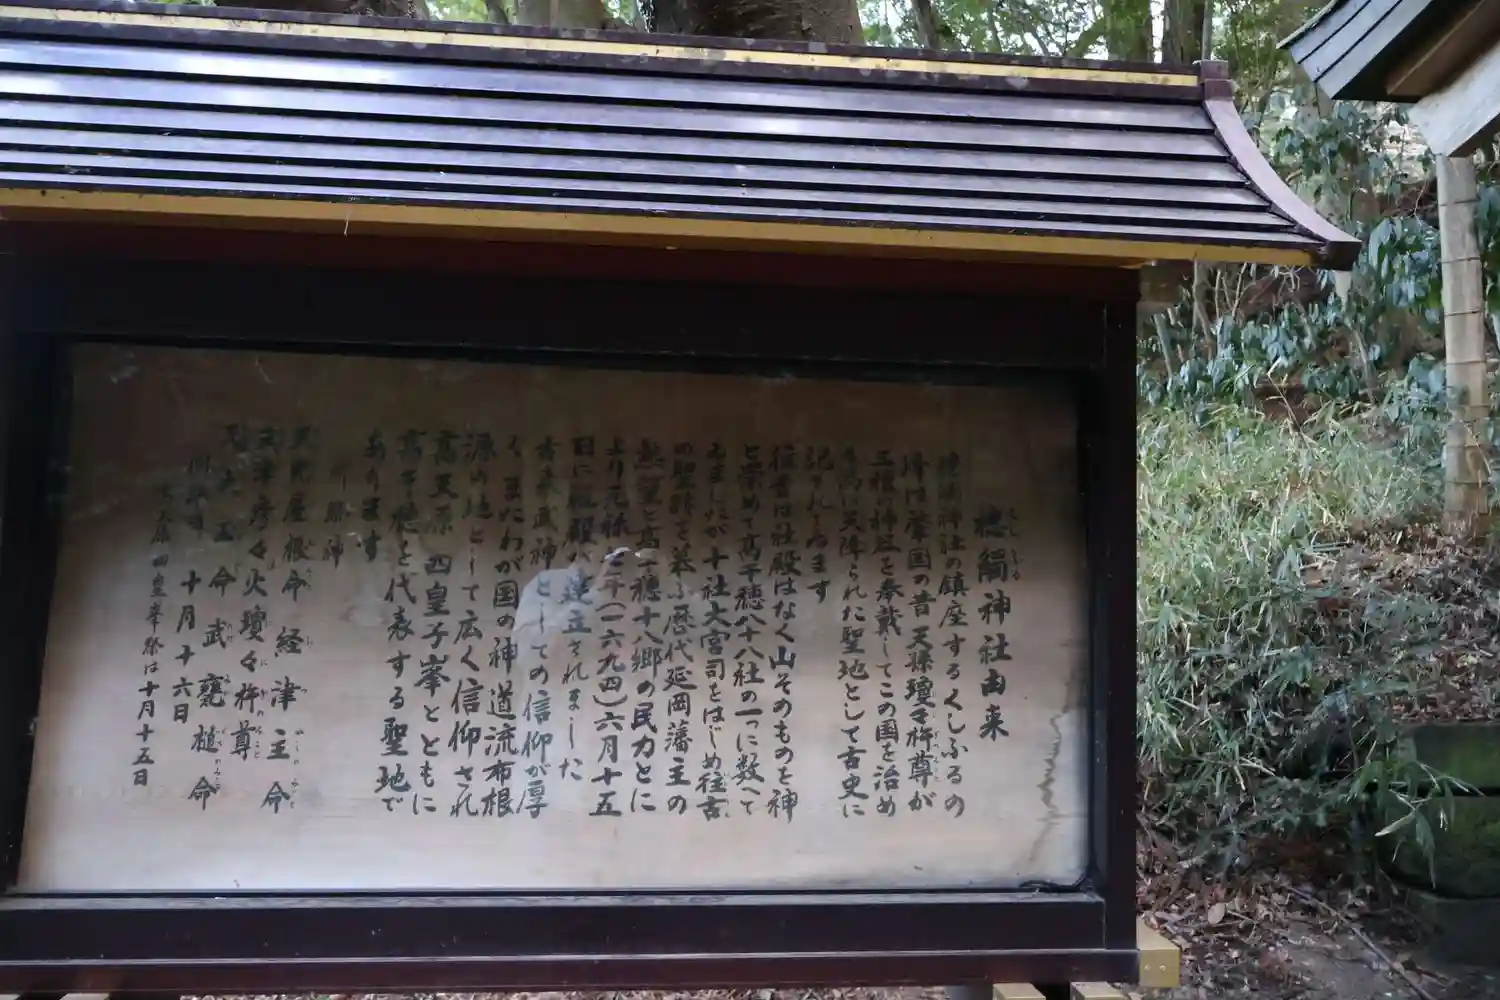 槵觸神社由来
槵觸神社の鎮座するくしふるの
峰は肇国の昔天孫瓊々杵尊が
三種神器を奉戴してこの国を治め
に天降られた聖地として古史に
記されてゐます
往昔は社殿はなく山そのものを神
と崇めて高千穂八十八社の一つに数へて
ゐましたが十社大宮司をはじめ往古
の聖跡を慕ふ歴代延岡藩主の
熱望と高千穂十八郷の民力とに
より元禄七年(一六九四)六月十五
日に社殿が建立されました
古来武神としての信仰が厚
く またわが国の神道流布根
源の地として広く信仰され
高天原 四皇子峯とともに
高千穂を代表する聖地で
あります
御祭神
天児屋根命 経津主命
天津彦々火瓊々杵尊
天太玉命 武甕槌命
例祭日 十月十六日
高天原四皇峯祭は十月十五日